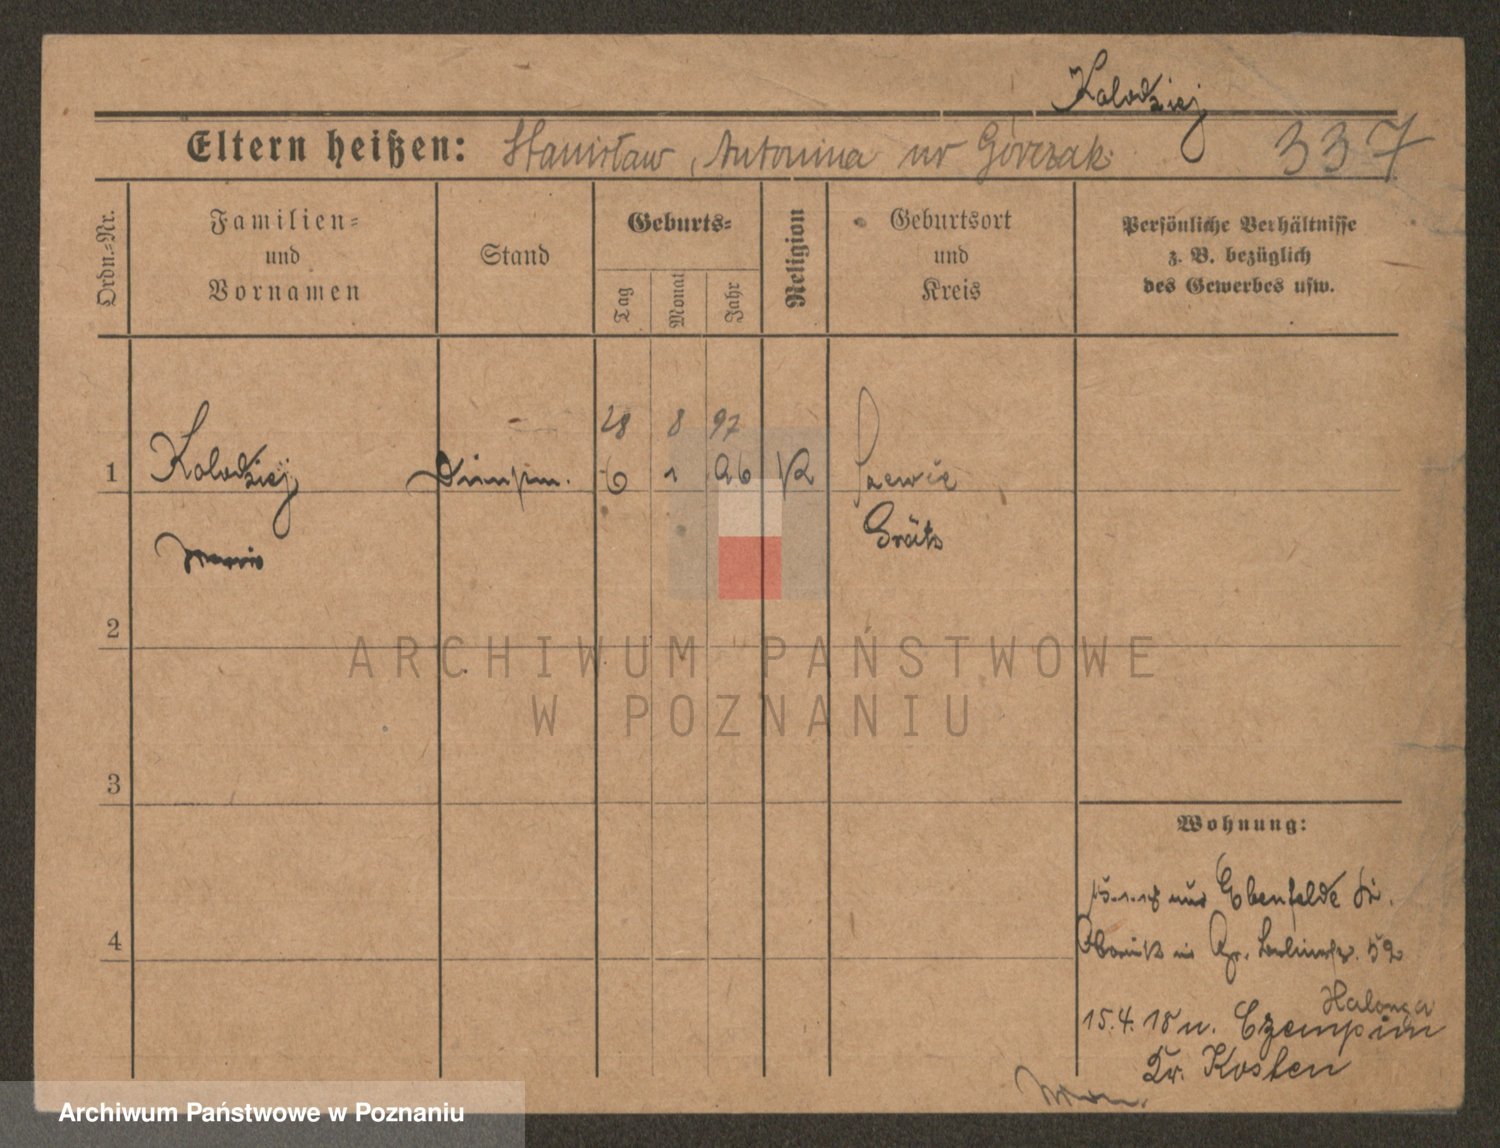 Kolodziej
Eltern heißen: Stanisław, Antonina ur Górczak 337
Ordn.=Nr.
Familien=
und
Vornamen
Stand
Geburts=
Tag
Monat
Jahr
Religion
Geburtsort
und
Kreis
Persönliche Verhältnisse
z. B. bezüglich
des Gewerbes usw.
28 8 97
1 Kolodziej 6 1 96 R
Grätz
2
3
4
Wohnung:
Ebenfelde Kr.
Obornik in 52
Halonga
15.4.18 n. Czempin
Kr. Kosten
ARCHIWUM PAŃSTWOWE
W POZNANIU
Archiwum Państwowe w Poznaniu